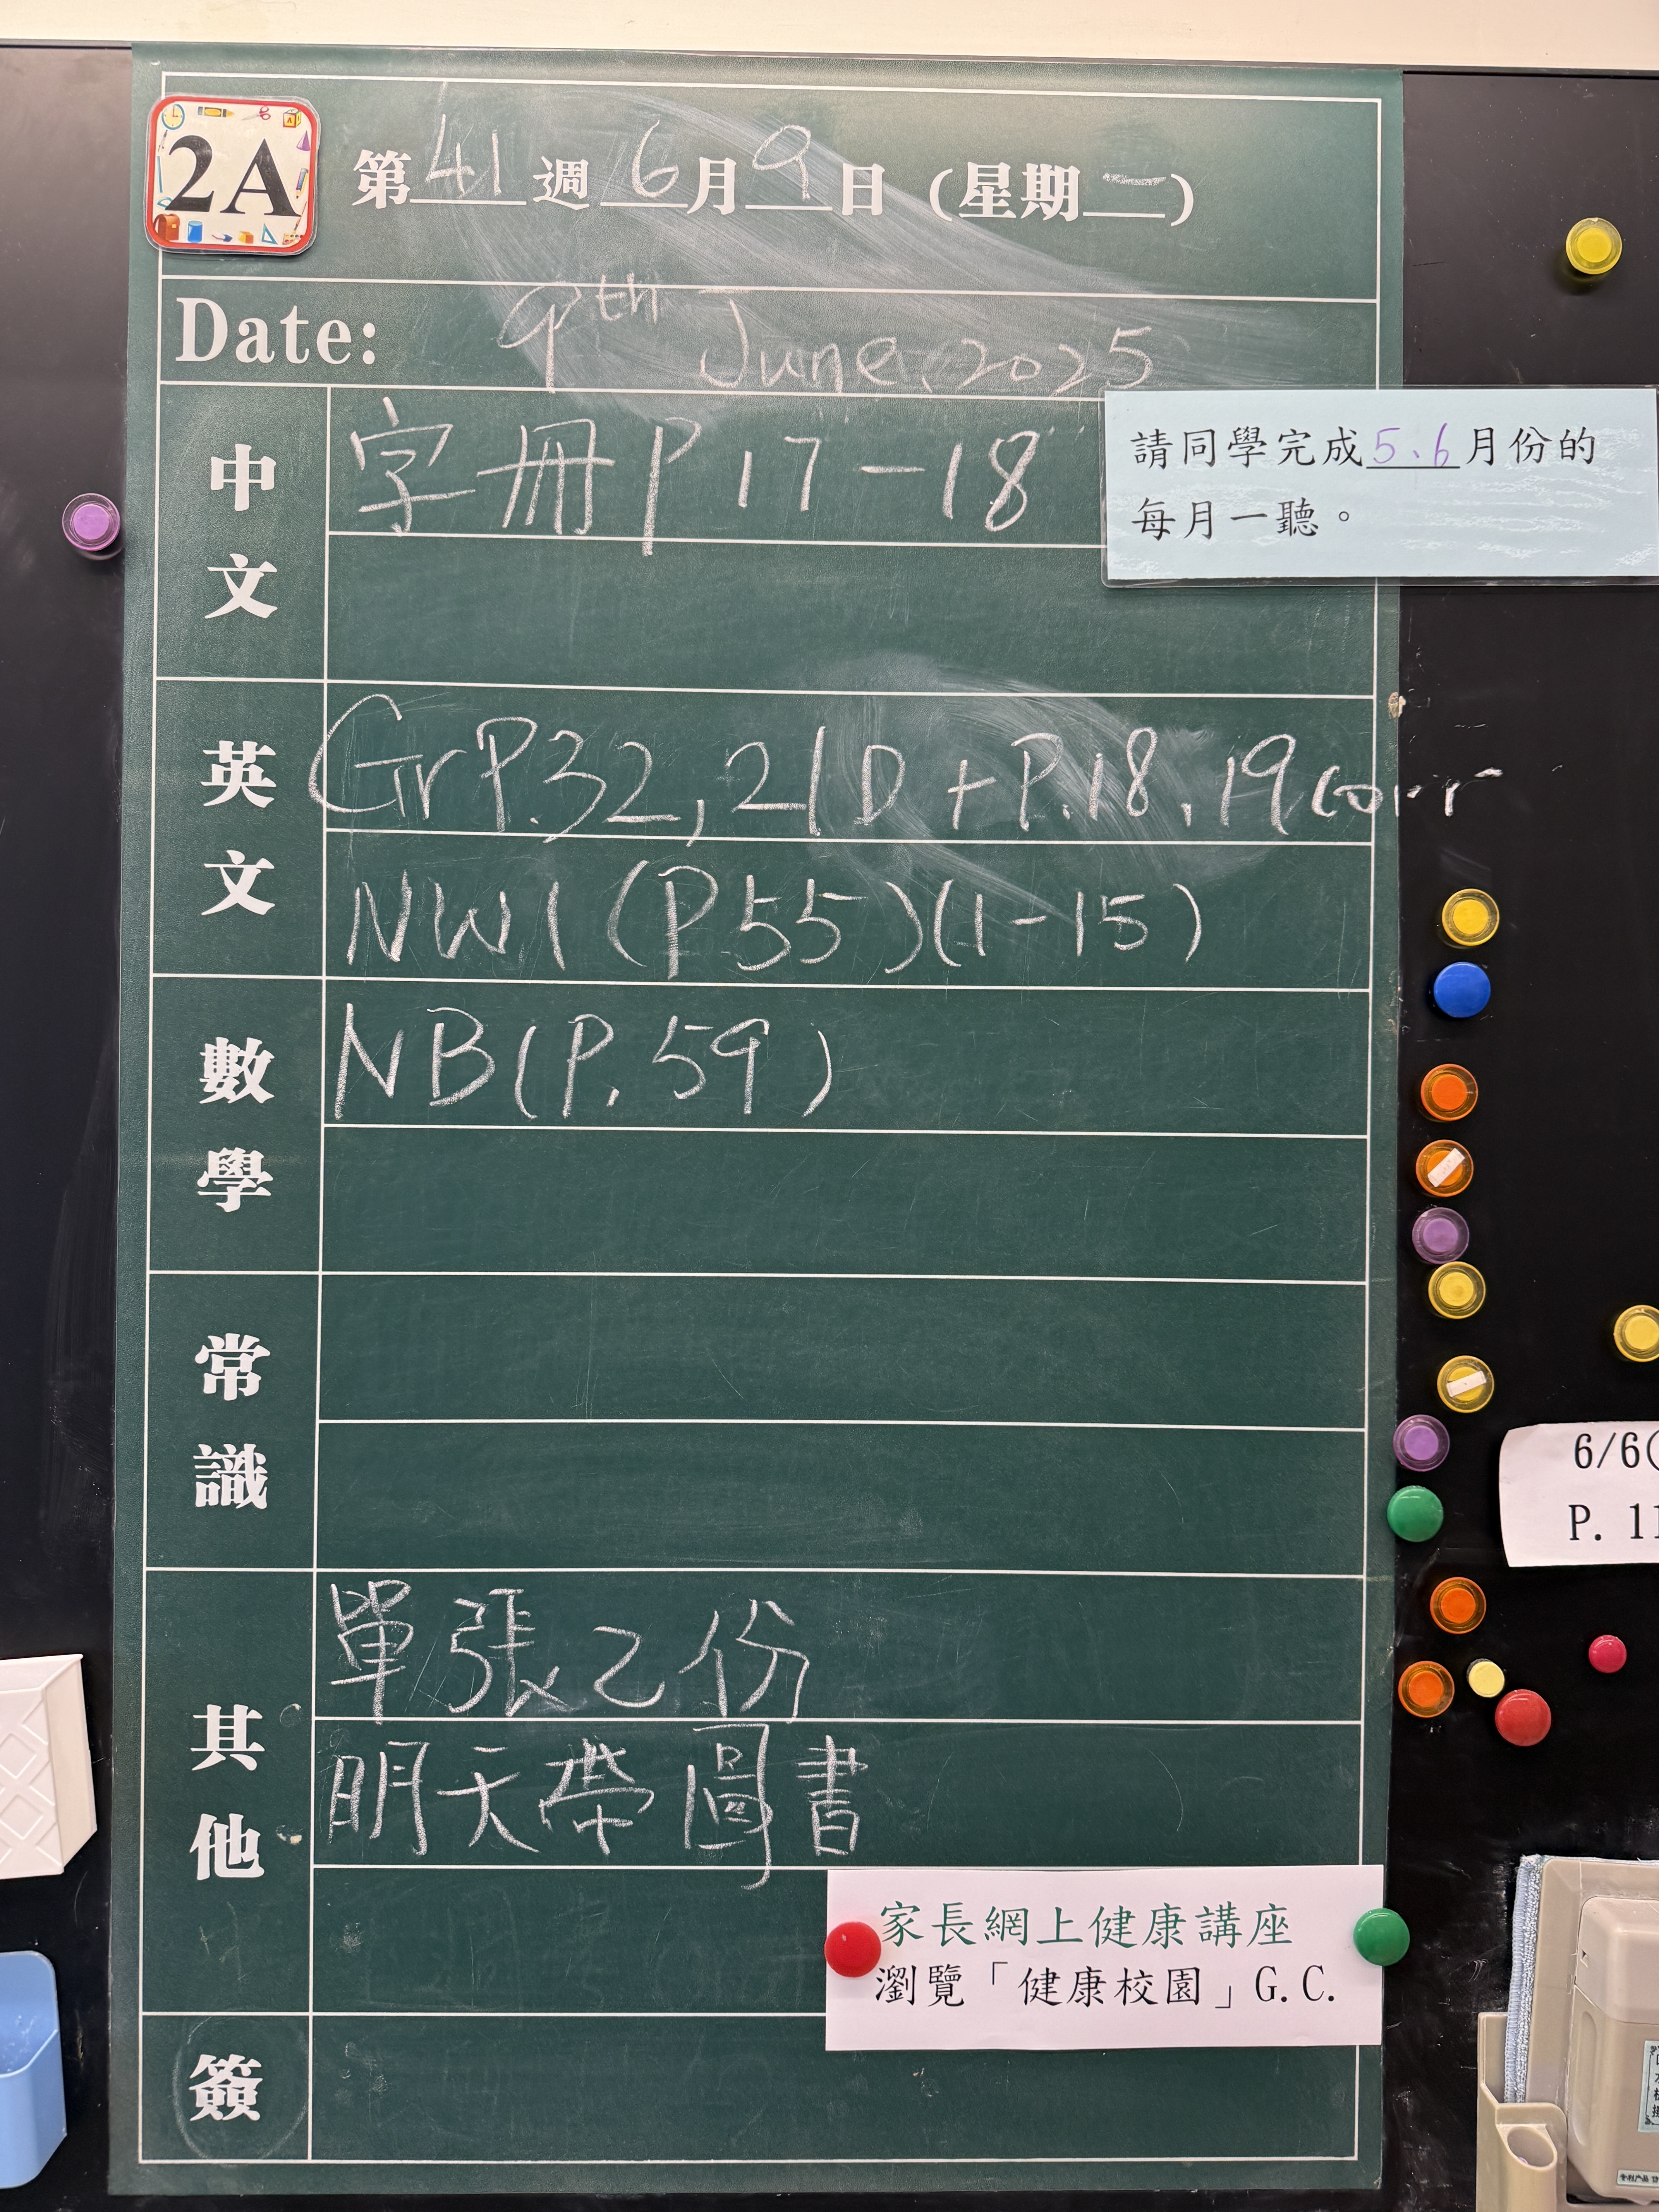 2A
第41週 6月9日 (星期二)
Date: 9th June, 2025
中文
字冊P17-18
請同學完成5、6月份的
每月一聽。
英文
Gr P.32, 21D + P.18, 19 corr
NW1 (P55)(1-15)
數學
NB(P.59)
常識
6/6(
P. 11
其他
單張乙份
明天帶圖書
家長網上健康講座
瀏覽「健康校園」G.C.
簽